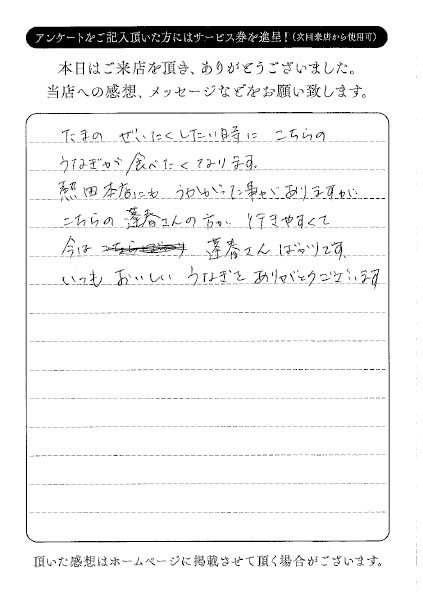 アンケートをご記入頂いた方にはサービス券を進呈!(次回来店から使用可)
本日はご来店を頂き、ありがとうございました。
当店への感想、メッセージなどをお願い致します。
たまの ぜいたくしたい時に こちらの
うなぎが 食べたくなります。
熱田本店にも うかがった事がありますが
こちらの 蓬春さんの方が 行きやすくて
今は 蓬春さん ばかりです。
いつも おいしい うなぎを ありがとうございます
頂いた感想はホームページに掲載させて頂く場合がございます。